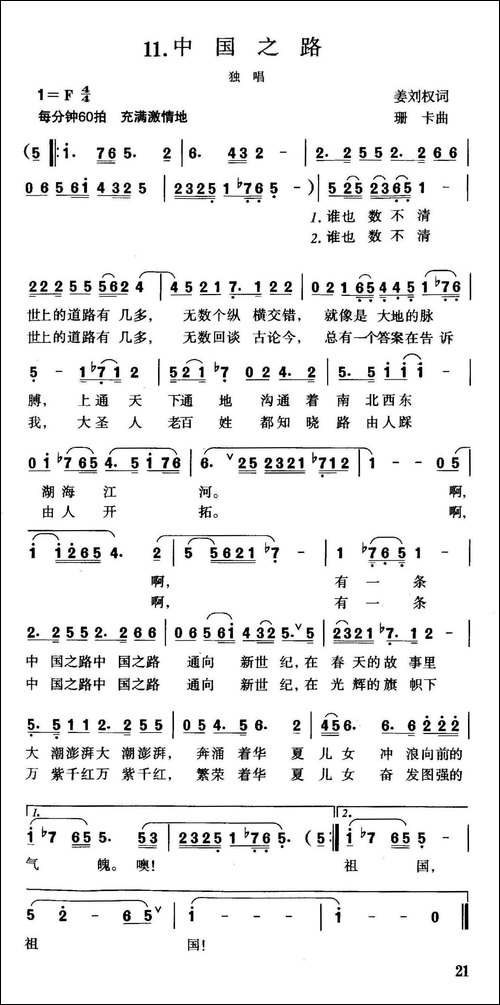 11.中国之路
独唱
1=F 4/4
姜刘权词
每分钟60拍 充满激情地
珊卡曲
(5 |: 1. 765. 2 | 6. 432 - | 2. 2552. 266
06561 4325 | 2325 1 b765 | 5 - - ) 5 | 525 2365 1 -
1.谁也 数不清
2.谁也 数不清
222555624 | 45217. 122 | 0121654451b76
世上的道路有 几多, 无数个纵 横交错, 就像是 大地的脉
世上的道路有 几多, 无数回谈 古论今, 总有一个答案在告诉
5 - 1b7112 | 521b7 024. | 5. 5 1 1 1
膊, 上通天 下通地 沟通着 南北西东
我, 大圣人 老百姓 都知晓 路由人踩
01b765 4. 5176 | 6. v 25 2321 b712 | 1 - - 05
湖海江 河。 啊,
由人开 拓。 啊,
1 1265 4. 2 | 5 5621 b7 - | 1 b765 1
啊, 有一条
啊, 有一条
2. 2552. 266 | 06561 4325. v 5 | 2321 b7. 7 2
中 国之路中 国之路 通向 新世纪,在 春天的故事里
中 国之路中 国之路 通向 新世纪,在 光辉的旗帜下
5. 5112. 255 | 05. 4 56. 2 | 456. 6. 22212
大 潮澎湃大 潮澎湃, 奔涌着华 夏儿女 冲浪向前的
万 紫千红万 紫千红, 繁荣着华 夏儿女 奋发图强的
1. 2.
1 b7 65 5. 53 | 2325 1 b765 5. (5 :| 1 b7 65 5.
气 魄。噢! 祖国,
5 2 - 65 5 v | 1 - - - | 1 - - 0 ||
祖 国!
21